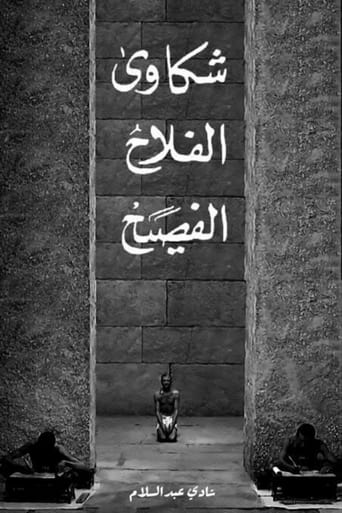 شكاوى
الفلاحُ
الفصَيحُ
شادي عبد السلام